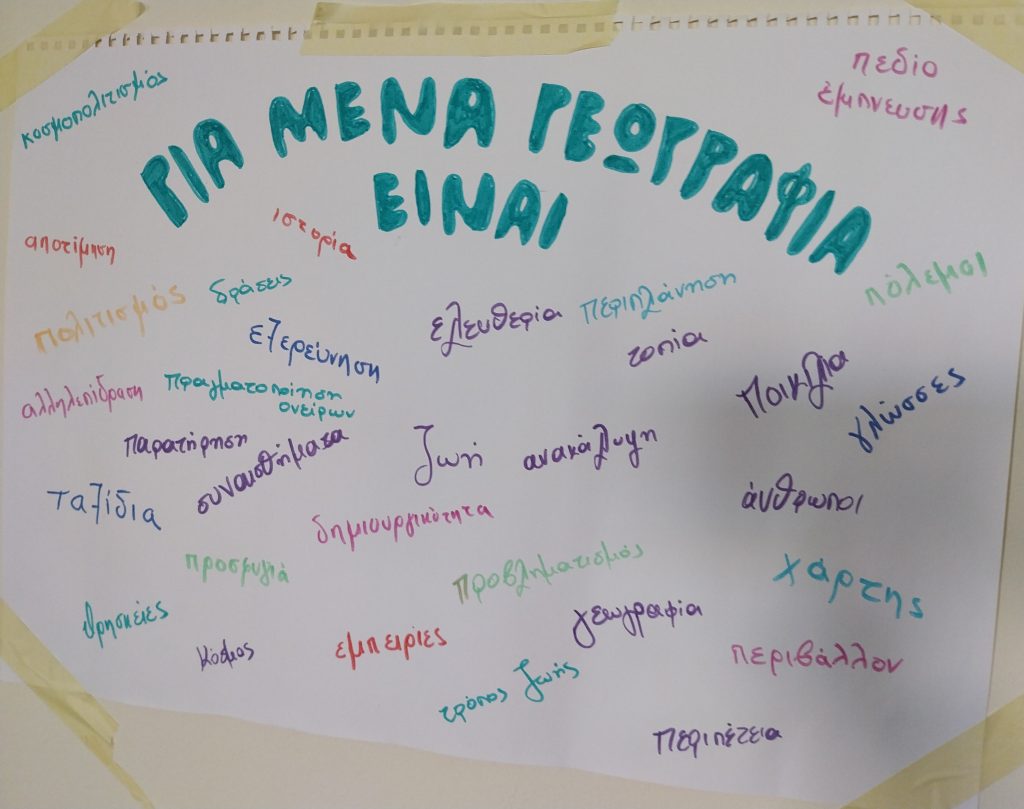 κοσμοπολιτισμός
πεδίο
έμπνευσης
ΓΙΑ ΜΕΝΑ ΓΕΩΓΡΑΦΙΑ
ΕΙΝΑΙ
αποτίμηση
ιστορία
πολιτισμός
δράσεις
ελευθερία
περιπλάνηση
πόλεμοι
εξερεύνηση
τοπία
αλληλεπίδραση
πραγματοποίηση
ονείρων
ποικιλία
γλώσσες
παρατήρηση
συναισθήματα
ζωή
ανακάλυψη
ταξίδια
δημιουργικότητα
άνθρωποι
προσφυγιά
προβληματισμός
χάρτης
θρησκείες
κόσμος
εμπειρίες
γεωγραφία
περιβάλλον
τρόπος ζωής
περιπέτεια